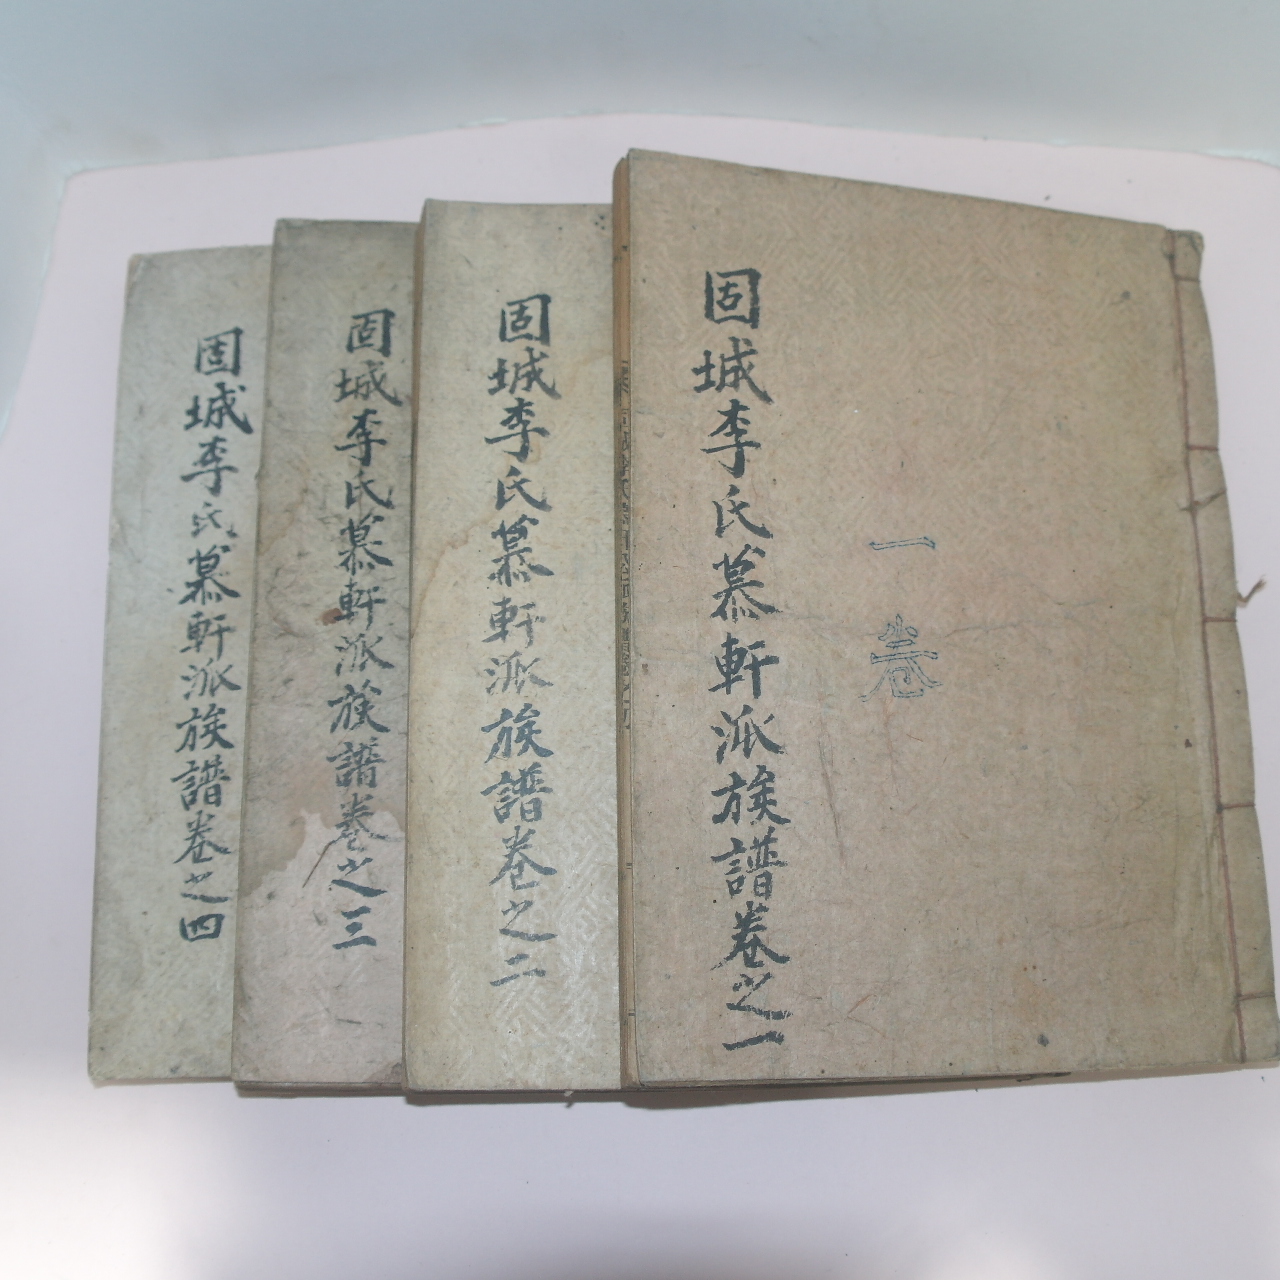 固城李氏慕軒派族譜卷之一
一卷
固城李氏慕軒派族譜卷之二
固城李氏慕軒派族譜卷之三
固城李氏慕軒派族譜卷之四